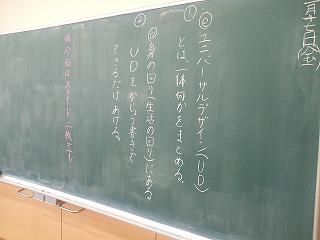 月七日(金)
① @ユニバーサルデザイン(UD)
とは、一体何かをまとめる。
② @身の回り(生活の回り)にある
UDをかじょう書きで
できるだけあげる。
今日はスライド一枚です!